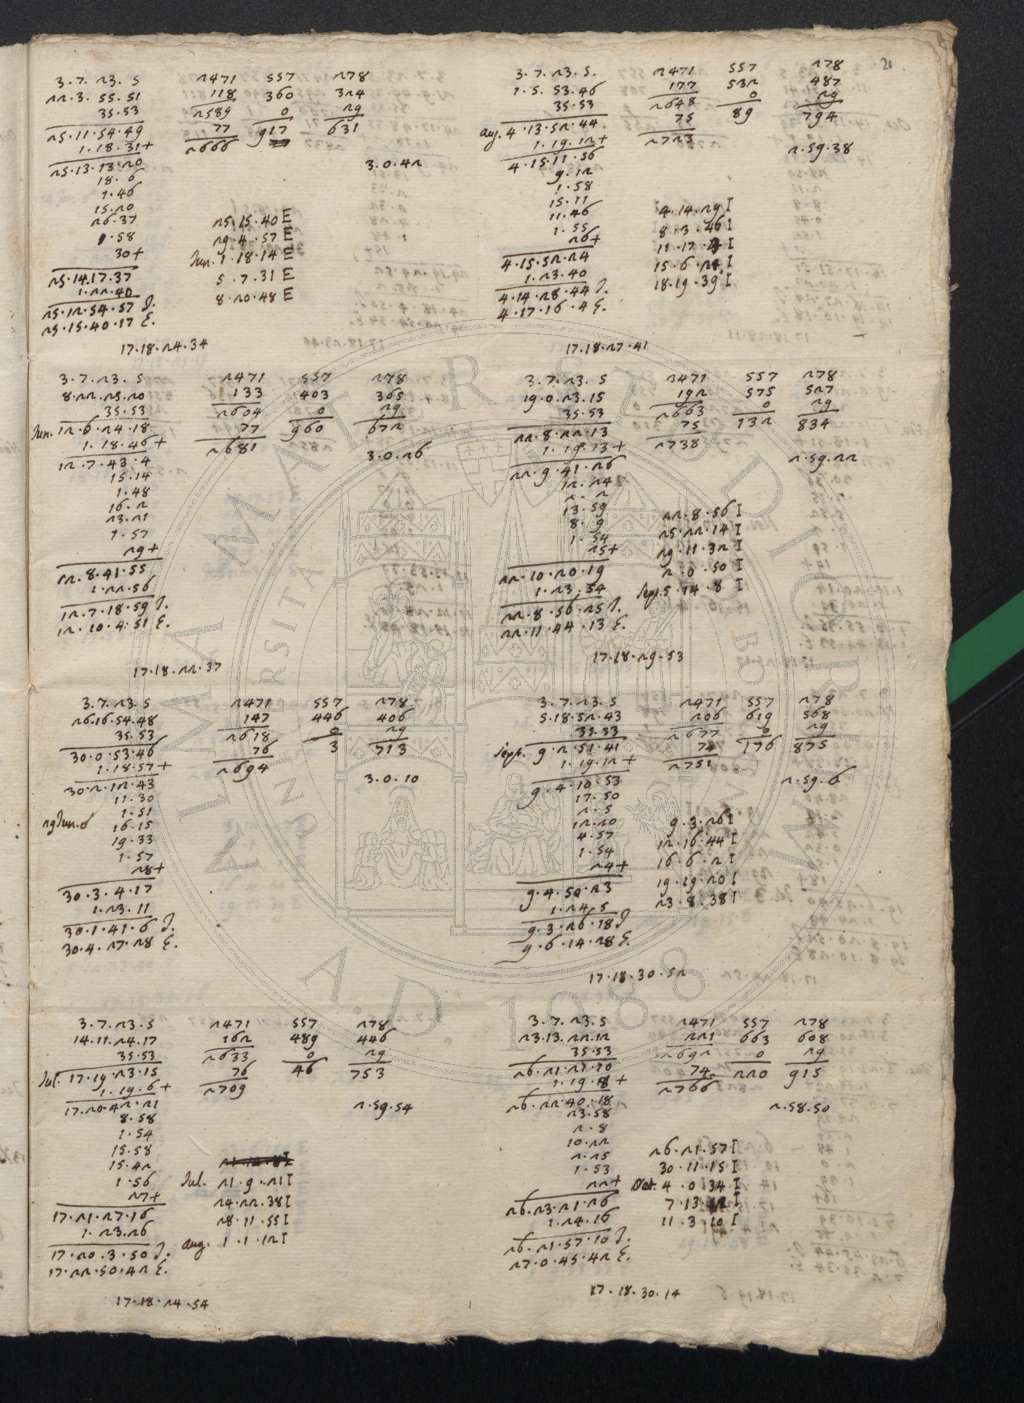 21
3.7.23.5
22.3.55.51
35.53
25.11.54.49
1.18.31+
25.13.13.20
18.6
1.46
15.20
26.37
1.58
30+
25.14.17.37
1.22.40
25.12.54.57 J.
25.15.40.17 E.
2471 557 278
118 360 324
2589 0 29
77 917 631
2666
3.0.42
25.15.40 E
29.4.57 E
Jun. 1.18.14 E
5.7.31 E
8.20.48 E
17.18.24.34
3.7.23.5.
1.5.53.46
35.53
aug. 4.13.52.44
1.19.12+
4.15.11.56
9.12
1.58
15.11
11.46
1.55
26+
4.15.52.24
1.23.40
4.14.28.44 J.
4.17.16.4 E.
2471 557 278
177 532 487
2648 0 29
75 89 794
2723
2.59.38
4.14.29 I
8.3.46 I
11.17. I
15.6.24 I
18.19.39 I
17.18.27.41
3.7.23.5
8.22.25.20
35.53
Jun. 12.6.24.18
1.18.46+
12.7.43.4
15.14
1.48
16.2
23.21
1.57
29+
12.8.41.55
1.22.56
12.7.18.59 J.
12.10.4.51 E.
2471 557 278
133 403 365
2604 0 29
77 960 672
2681
3.0.26
17.18.22.37
3.7.23.5
19.0.23.15
35.53
22.8.22.13
1.19.13+
22.9.41.26
12.24
2.2
13.59
8.9
1.54
25+
22.10.20.19
1.23.54
22.8.56.25 J.
22.11.44.13 E.
2471 557 278
192 575 527
2663 0 29
75 132 834
2738
2.59.22
22.8.56 I
25.22.14 I
29.11.32 I
2.0.50 I
Sept. 5.14.8 I
17.18.29.53
3.7.23.5
26.16.54.48
35.53
30.0.53.46
1.18.57+
30.2.12.43
11.30
1.51
29 Jun. 6
16.15
19.33
1.57
28+
30.3.4.17
1.23.11
30.1.41.6 J.
30.4.27.28 E.
2471 557 278
147 446 406
2618 0 29
76 3 713
2694
3.0.10
3.7.23.5
5.18.52.43
35.53
Sept. 9.2.51.41
1.19.12+
9.4.10.53
17.50
2.5
12.20
4.57
1.54
24+
9.4.50.23
1.24.5
9.3.26.18 J.
9.6.14.28 E.
2471 557 278
206 619 568
2677 0 29
74 176 875
2751
2.59.6
9.3.26 I
12.16.44 I
16.6.2 I
19.19.20 I
23.8.38 I
17.18.30.52
3.7.23.5
14.11.24.17
35.53
Jul. 17.19.23.15
1.19.6+
17.20.42.21
8.58
1.54
15.58
15.42
1.56
27+
17.21.27.16
1.23.26
17.20.3.50 J.
17.22.50.42 E.
2471 557 278
162 489 446
2633 0 29
76 46 753
2709
2.59.54
Jul. 21.9.21 I
24.22.38 I
28.11.55 I
aug. 1.1.12 I
17.18.24.54
3.7.23.5
23.13.22.12
35.53
26.21.21.10
1.19.8+
26.22.40.18
23.58
2.8
10.22
2.25
1.53
22+
26.23.21.26
1.24.16
26.21.57.10 J.
27.0.45.42 E.
2471 557 278
221 663 608
2692 0 29
74 220 915
2766
2.58.50
26.21.57 I
30.11.15 I
Oct. 4.0.34 I
7.13.52 I
11.3.10 I
17.18.30.14